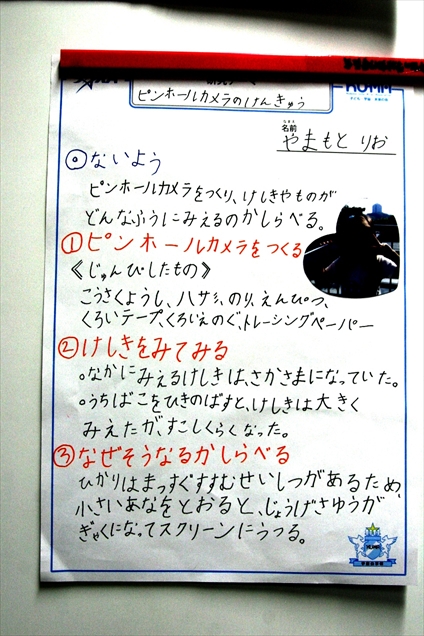 ピンホールカメラのけんきゅう
名前
やまもと りお
◎ないよう
ピンホールカメラをつくり、けしきやものが
どんなふうにみえるのかしらべる。
①ピンホールカメラをつくる
《じゅんびしたもの》
こうさくようし、ハサミ、のり、えんぴつ、
くろいテープ、くろいえのぐ、トレーシングペーパー
②けしきをみてみる
○なかにみえるけしきは、さかさまになっていた。
○うちばこをひきのばすと、けしきは大きく
みえたが、すこしくらくなった。
③なぜそうなるかしらべる
ひかりはまっすぐすすむせいしつがあるため、
小さいあなをとおると、じょうげさゆうが
ぎゃくになってスクリーンにうつる。